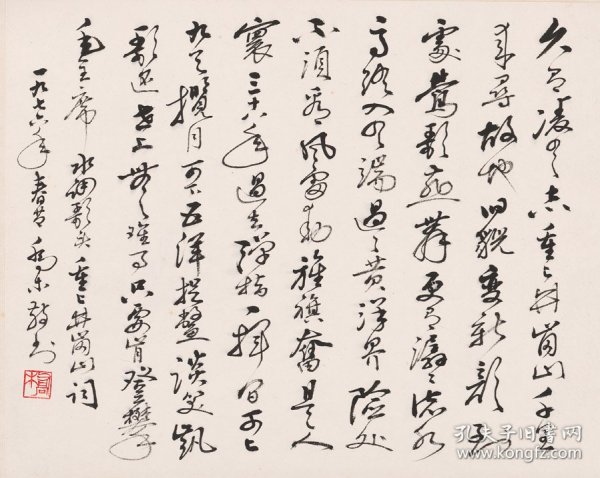 久有凌云志重上井崗山千里
来尋故地旧貌變新顔到
處鶯歌燕舞更有潺々流水
高路入云端過了黄洋界險处
不須看風雷動旌旗奮是人
寰三十八年過去彈指一揮间可上
九天攬月可下五洋捉鱉談笑凱
歌还世上無難事只要肯登攀
毛主席水调歌头重上井崗山詞
一九七六年春节乔木敬书
孔夫子旧书网
www.kongfz.com